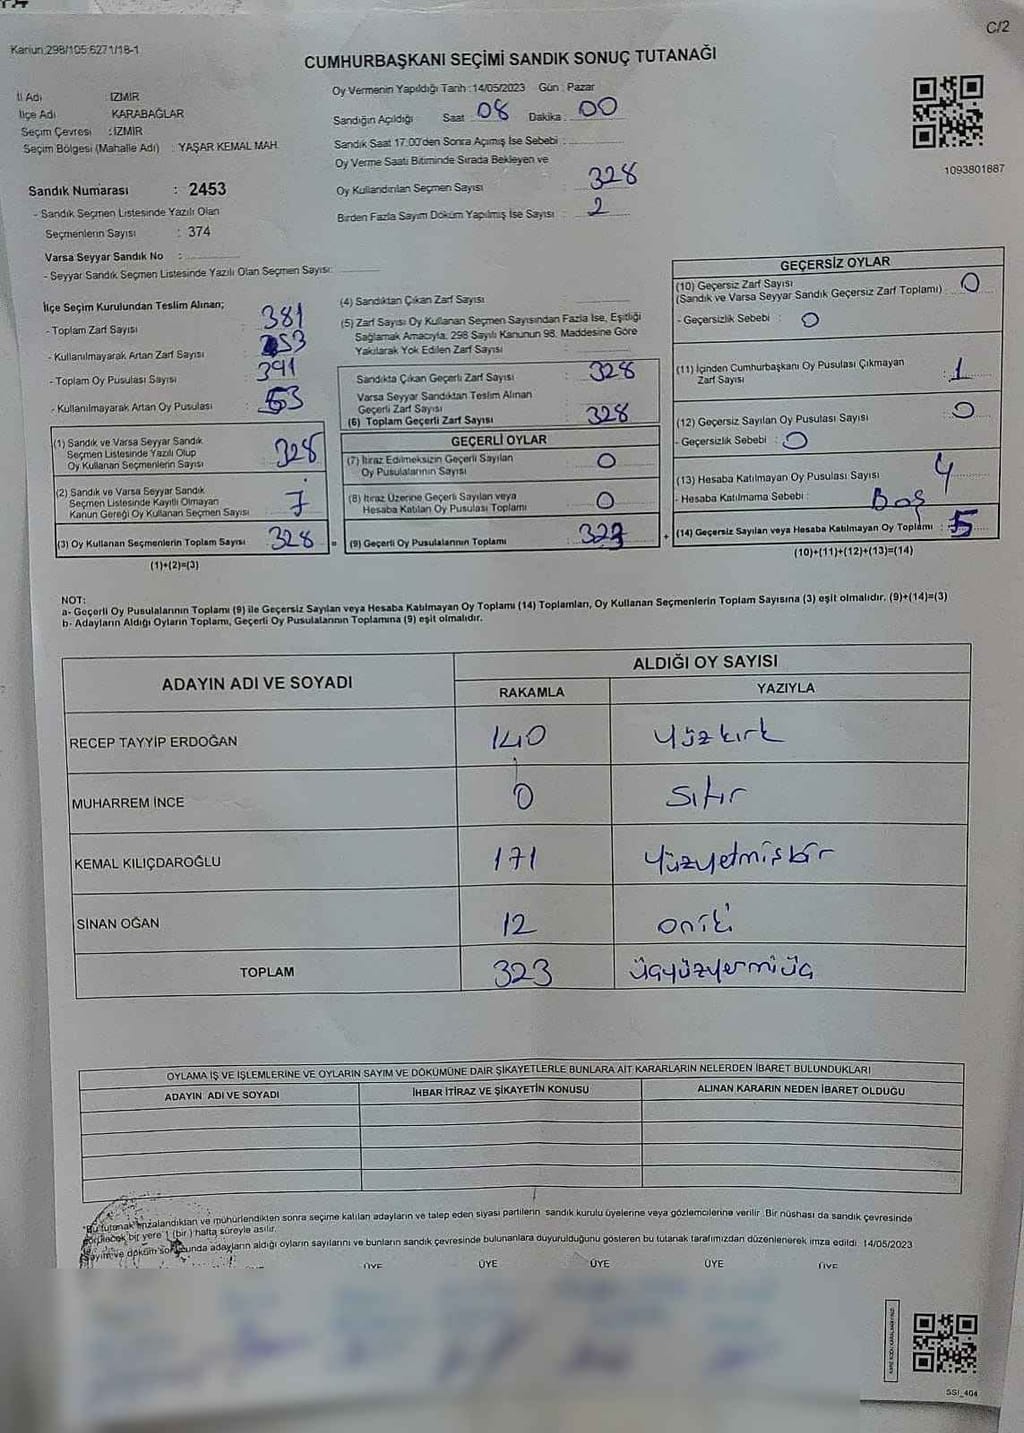 C/2
Kanun:298/105;6271/18-1
CUMHURBAŞKANI SEÇİMİ SANDIK SONUÇ TUTANAĞI
İl Adı : İZMİR
İlçe Adı : KARABAĞLAR
Seçim Çevresi : İZMİR
Seçim Bölgesi (Mahalle Adı) : YAŞAR KEMAL MAH.
Oy Vermenin Yapıldığı Tarih :14/05/2023 Gün : Pazar
Sandığın Açıldığı Saat : 08 Dakika : 00
Sandık Saat 17:00'den Sonra Açımış İse Sebebi :
Oy Verme Saati Bitiminde Sırada Bekleyen ve
Oy Kullandırılan Seçmen Sayısı : 328
Birden Fazla Sayım Döküm Yapılmış İse Sayısı : 2
1093801887
Sandık Numarası : 2453
- Sandık Seçmen Listesinde Yazılı Olan
Seçmenlerin Sayısı : 374
Varsa Seyyar Sandık No :
- Seyyar Sandık Seçmen Listesinde Yazılı Olan Seçmen Sayısı:
İlçe Seçim Kurulundan Teslim Alınan;
- Toplam Zarf Sayısı : 381
- Kullanılmayarak Artan Zarf Sayısı : 53
- Toplam Oy Pusulası Sayısı : 391
- Kullanılmayarak Artan Oy Pusulası : 63
(1) Sandık ve Varsa Seyyar Sandık
Seçmen Listesinde Yazılı Olup
Oy Kullanan Seçmenlerin Sayısı : 328
(2) Sandık ve Varsa Seyyar Sandık
Seçmen Listesinde Kayıtlı Olmayan
Kanun Gereği Oy Kullanan Seçmen Sayısı
(3) Oy Kullanan Seçmenlerin Toplam Sayısı 328 =
(1)+(2)=(3)
(4) Sandıktan Çıkan Zarf Sayısı :
(5) Zarf Sayısı Oy Kullanan Seçmen Sayısından Fazla İse, Eşitliği
Sağlamak Amacıyla, 298 Sayılı Kanunun 98. Maddesine Göre
Yakılarak Yok Edilen Zarf Sayısı :
Sandıkta Çıkan Geçerli Zarf Sayısı : 328
Varsa Seyyar Sandıktan Teslim Alınan
Geçerli Zarf Sayısı :
(6) Toplam Geçerli Zarf Sayısı : 328
GEÇERLİ OYLAR
(7) İtiraz Edilmeksizin Geçerli Sayılan
Oy Pusulalarının Sayısı : 0
(8) İtiraz Üzerine Geçerli Sayılan veya
Hesaba Katılan Oy Pusulası Toplamı : 0
(9) Geçerli Oy Pusulalarının Toplamı : 323 +
GEÇERSİZ OYLAR
(10) Geçersiz Zarf Sayısı
(Sandık ve Varsa Seyyar Sandık Geçersiz Zarf Toplamı) : 0
- Geçersizlik Sebebi : 0
(11) İçinden Cumhurbaşkanı Oy Pusulası Çıkmayan
Zarf Sayısı : 1
(12) Geçersiz Sayılan Oy Pusulası Sayısı : 0
- Geçersizlik Sebebi : 0
(13) Hesaba Katılmayan Oy Pusulası Sayısı : 4
- Hesaba Katılmama Sebebi : Boş
(14) Geçersiz Sayılan veya Hesaba Katılmayan Oy Toplamı : 5
(10)+(11)+(12)+(13)=(14)
NOT:
a- Geçerli Oy Pusulalarının Toplamı (9) ile Geçersiz Sayılan veya Hesaba Katılmayan Oy Toplamı (14) Toplamları, Oy Kullanan Seçmenlerin Toplam Sayısına (3) eşit olmalıdır. (9)+(14)=(3)
b- Adayların Aldığı Oyların Toplamı, Geçerli Oy Pusulalarının Toplamına (9) eşit olmalıdır.
ADAYIN ADI VE SOYADI
ALDIĞI OY SAYISI
RAKAMLA YAZIYLA
RECEP TAYYİP ERDOĞAN 140 Yüzkırk
MUHARREM İNCE 0 Sıfır
KEMAL KILIÇDAROĞLU 171 Yüzyetmişbir
SİNAN OĞAN 12 oniki
TOPLAM 323 üçyüzyermiüç
OYLAMA İŞ VE İŞLEMLERİNE VE OYLARIN SAYIM VE DÖKÜMÜNE DAİR ŞİKAYETLERLE BUNLARA AİT KARARLARIN NELERDEN İBARET BULUNDUKLARI
ADAYIN ADI VE SOYADI İHBAR İTİRAZ VE ŞİKAYETİN KONUSU ALINAN KARARIN NEDEN İBARET OLDUĞU
*Bu tutanak imzalandıktan ve mühürlendikten sonra seçime katılan adayların ve talep eden siyasi partilerin sandık kurulu üyelerine veya gözlemcilerine verilir. Bir nüshası da sandık çevresinde
görülecek bir yere 1 (bir) hafta süreyle asılır.
Sayım ve döküm sonucunda adayların aldığı oyların sayılarını ve bunların sandık çevresinde bulunanlara duyurulduğunu gösteren bu tutanak tarafımızdan düzenlenerek imza edildi. 14/05/2023
ÜYE ÜYE ÜYE ÜYE ÜYE
SSI_404